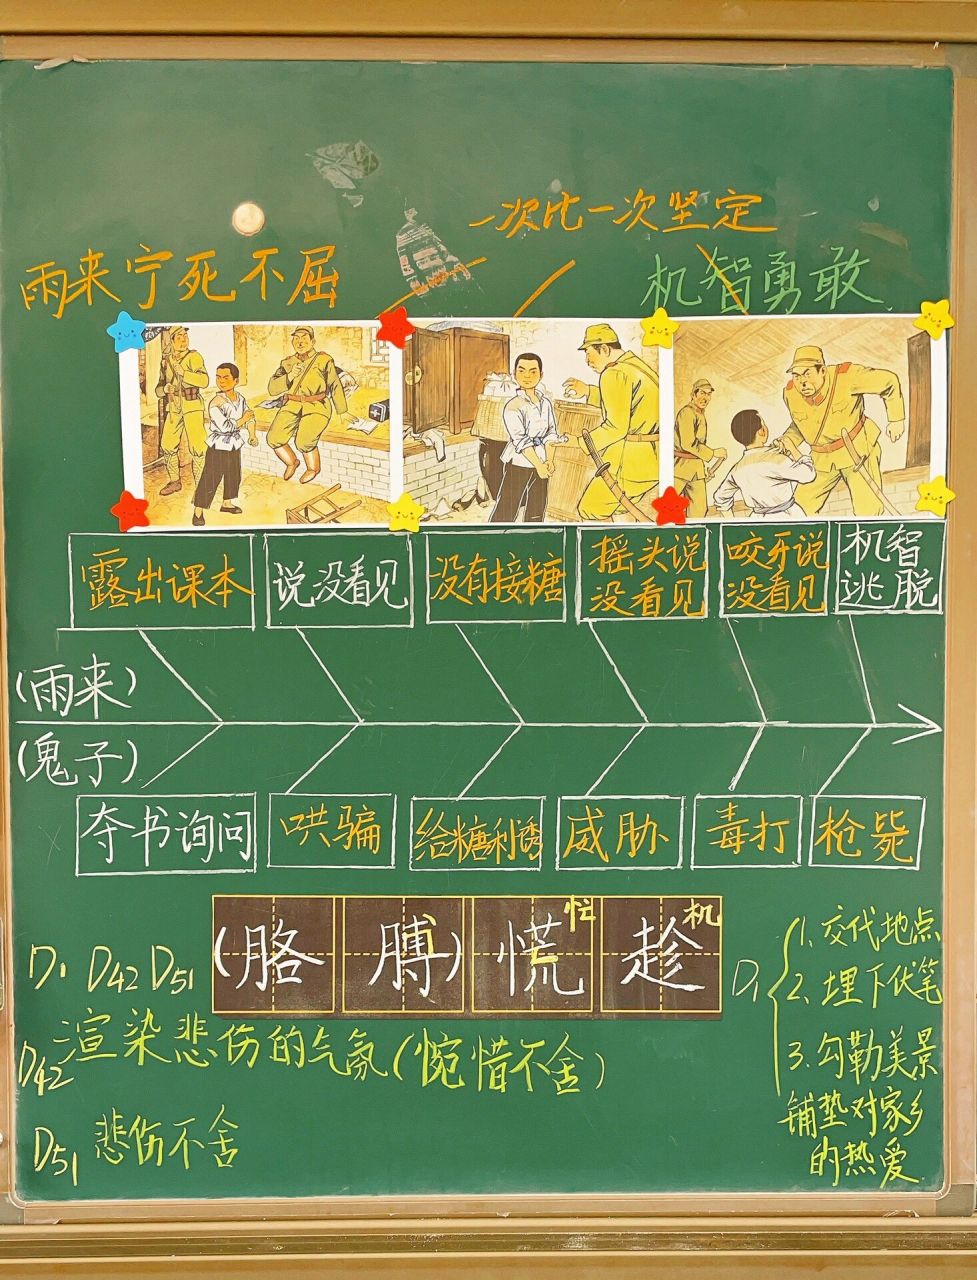 一次比一次坚定
雨来宁死不屈
机智勇敢
露出课本
说没看见
没有接糖
摇头说
没看见
咬牙说
没看见
机智
逃脱
(雨来)
(鬼子)
夺书询问
哄骗
给糖利诱
威胁
毒打
枪毙
(胳膊)慌趁
忙
机
D1 D42 D51
D42 渲染悲伤的气氛(惋惜不舍)
D51 悲伤不舍
D1
1.交代地点
2.埋下伏笔
3.勾勒美景
铺垫对家乡
的热爱